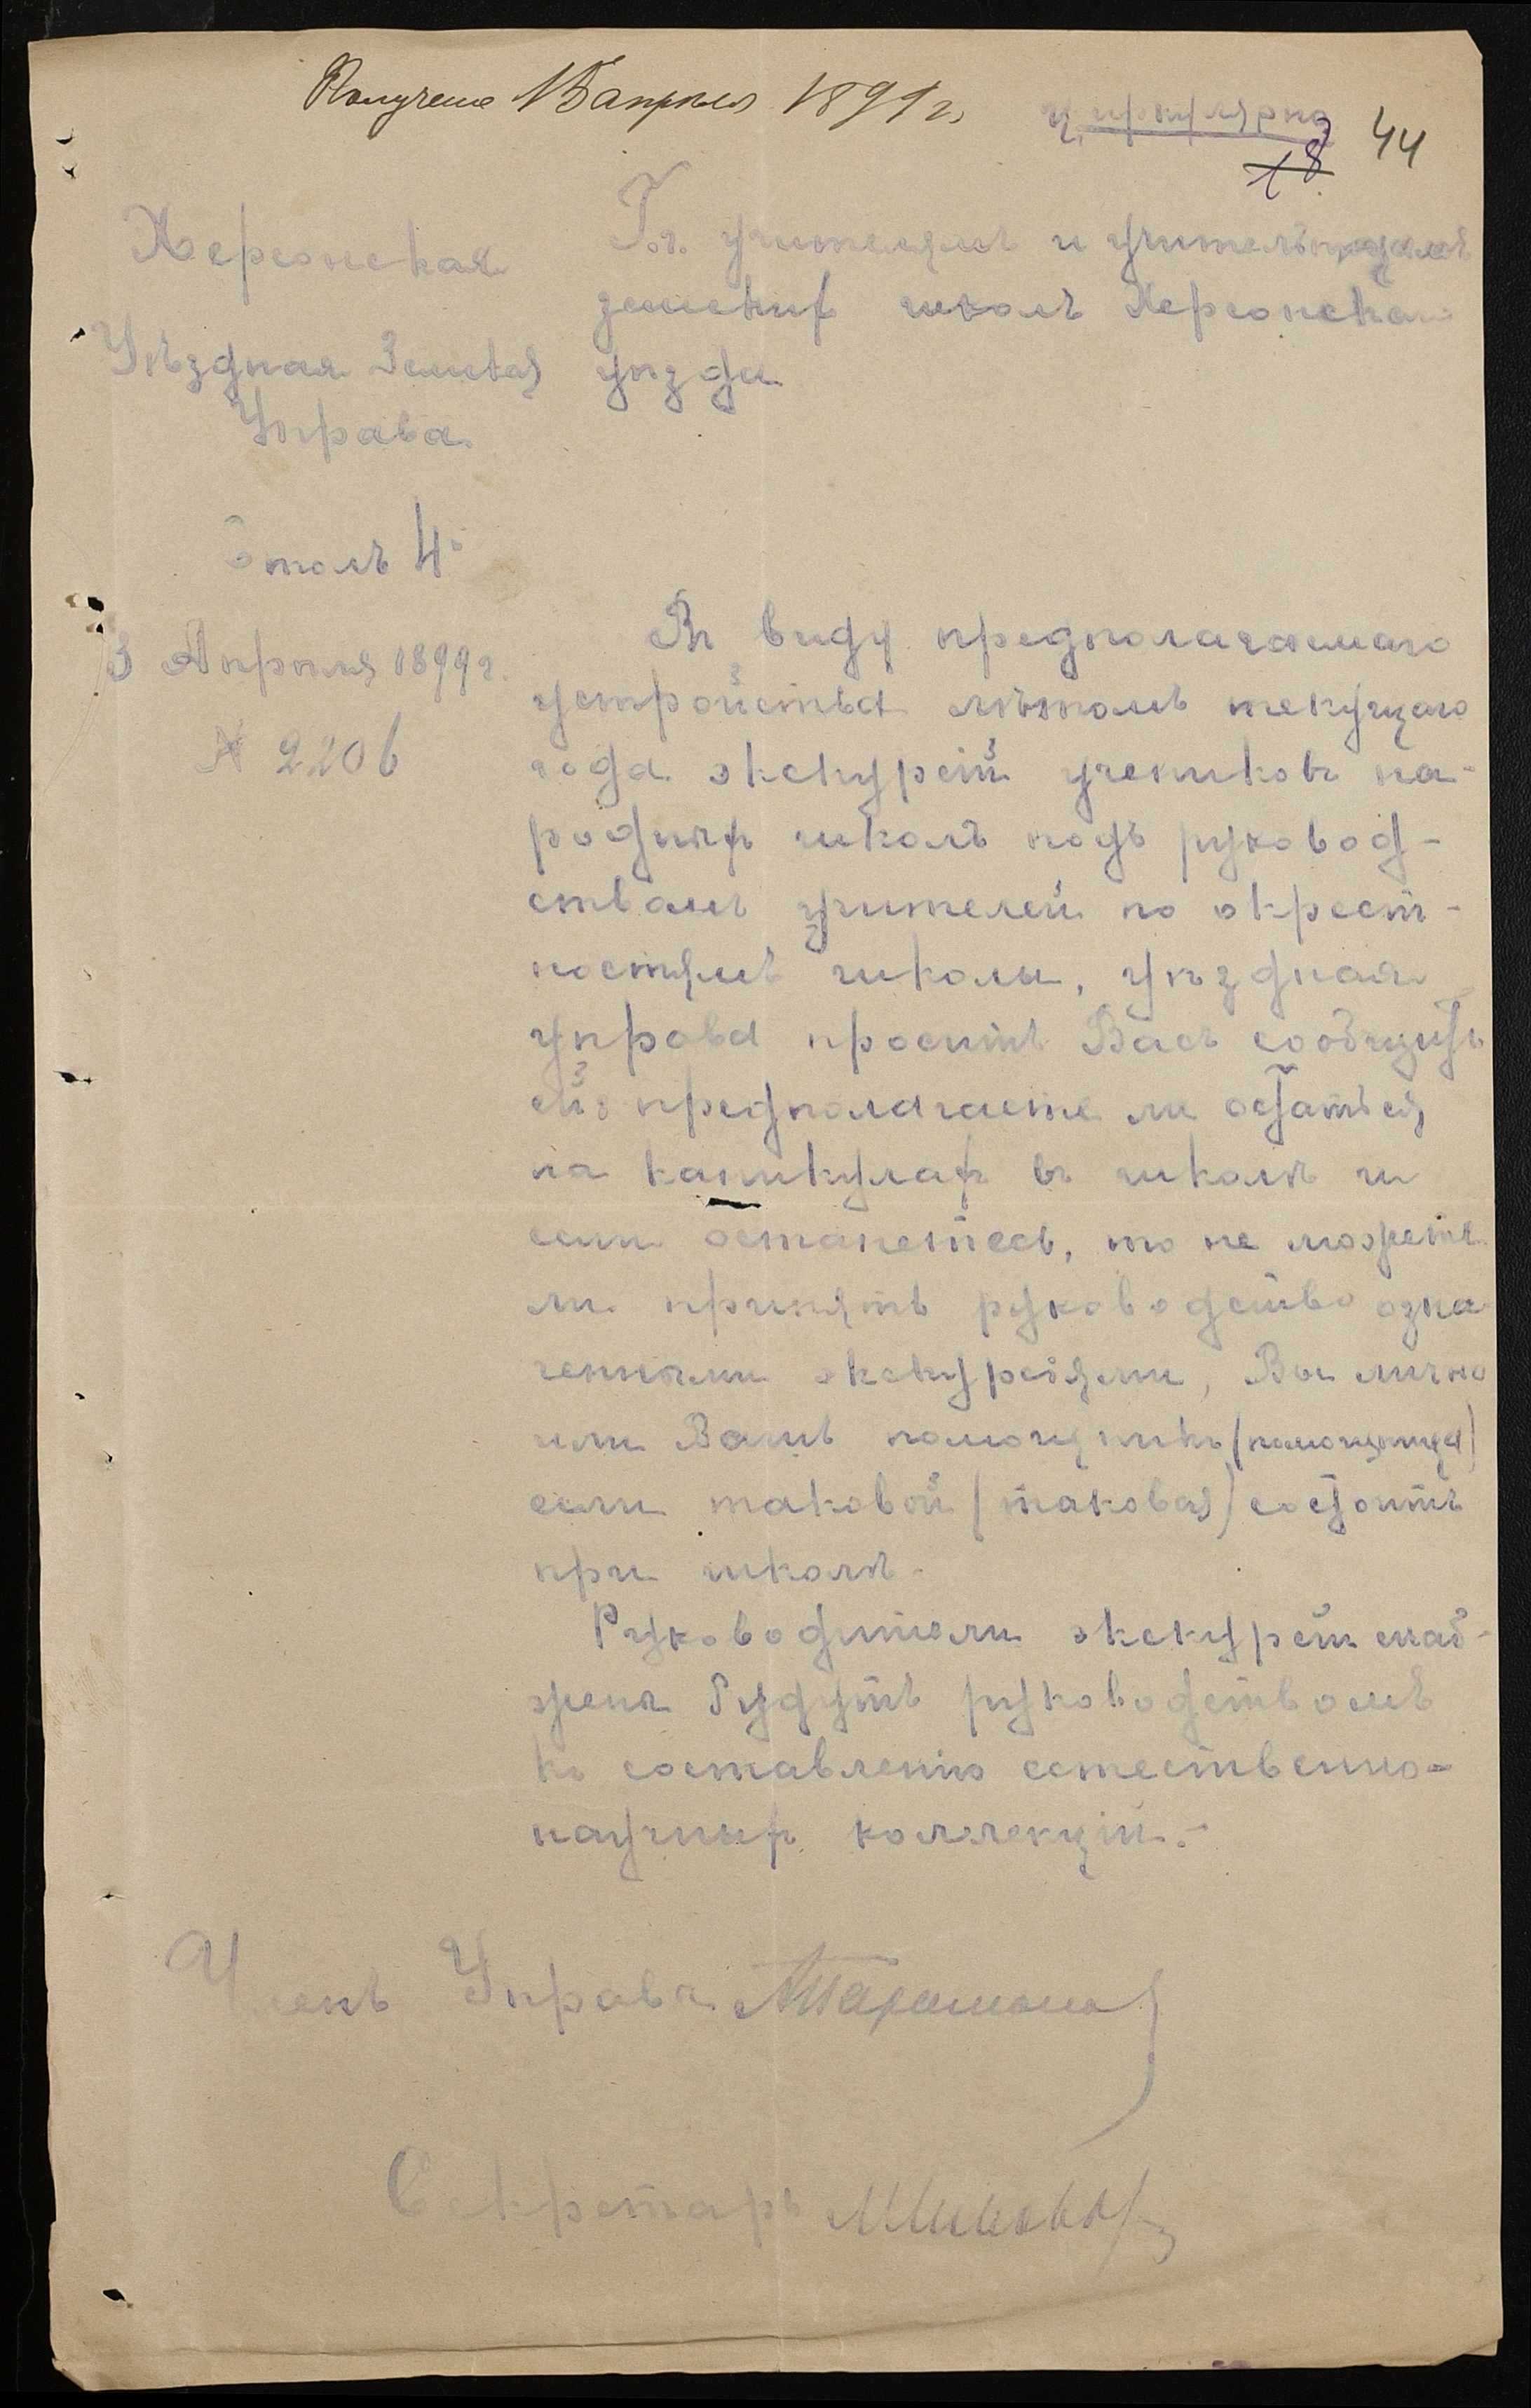 Получено 15 апреля 1899 г.
Циркулярно
18 44
Херсонская
Уѣздная Земская
Управа
Столъ 4
3 Апрѣля 1899 г.
№ 2206
Г.г. учителямъ и учительницамъ
земскихъ школъ Херсонскаго
уѣзда
Въ виду предполагаемаго
устройства лѣтомъ текущаго
года экскурсій учениковъ на-
родныхъ школъ подъ руковод-
ствомъ учителей по окрест-
ностямъ школы, уѣздная
управа проситъ Васъ сообщить
ей: предполагаете ли остаться
на каникулахъ въ школѣ и
если останетесь, то не можете
ли принять руководство озна-
ченными экскурсіями, Вы лично
или Вашъ помощникъ (помощница)
если таковой (таковая) состоитъ
при школѣ.
Руководители экскурсій снаб-
жены будутъ руководствомъ
къ составленію естественно-
научныхъ коллекцій.-
Членъ Управы
Секретарь